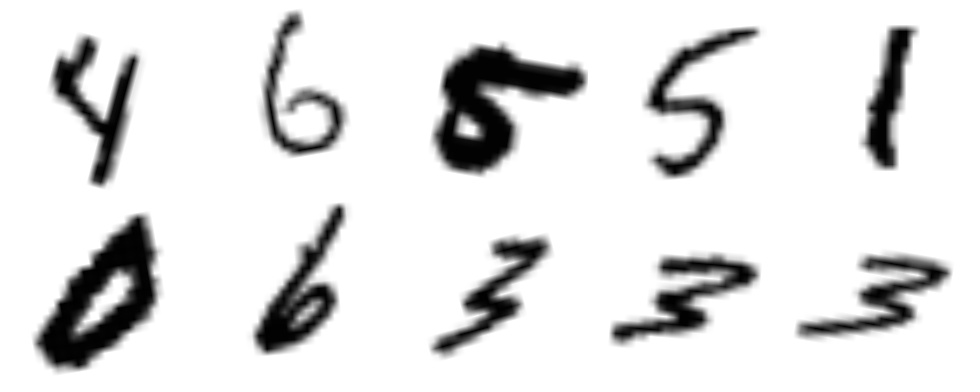 4 6 5 5 1
0 6 3 3 3